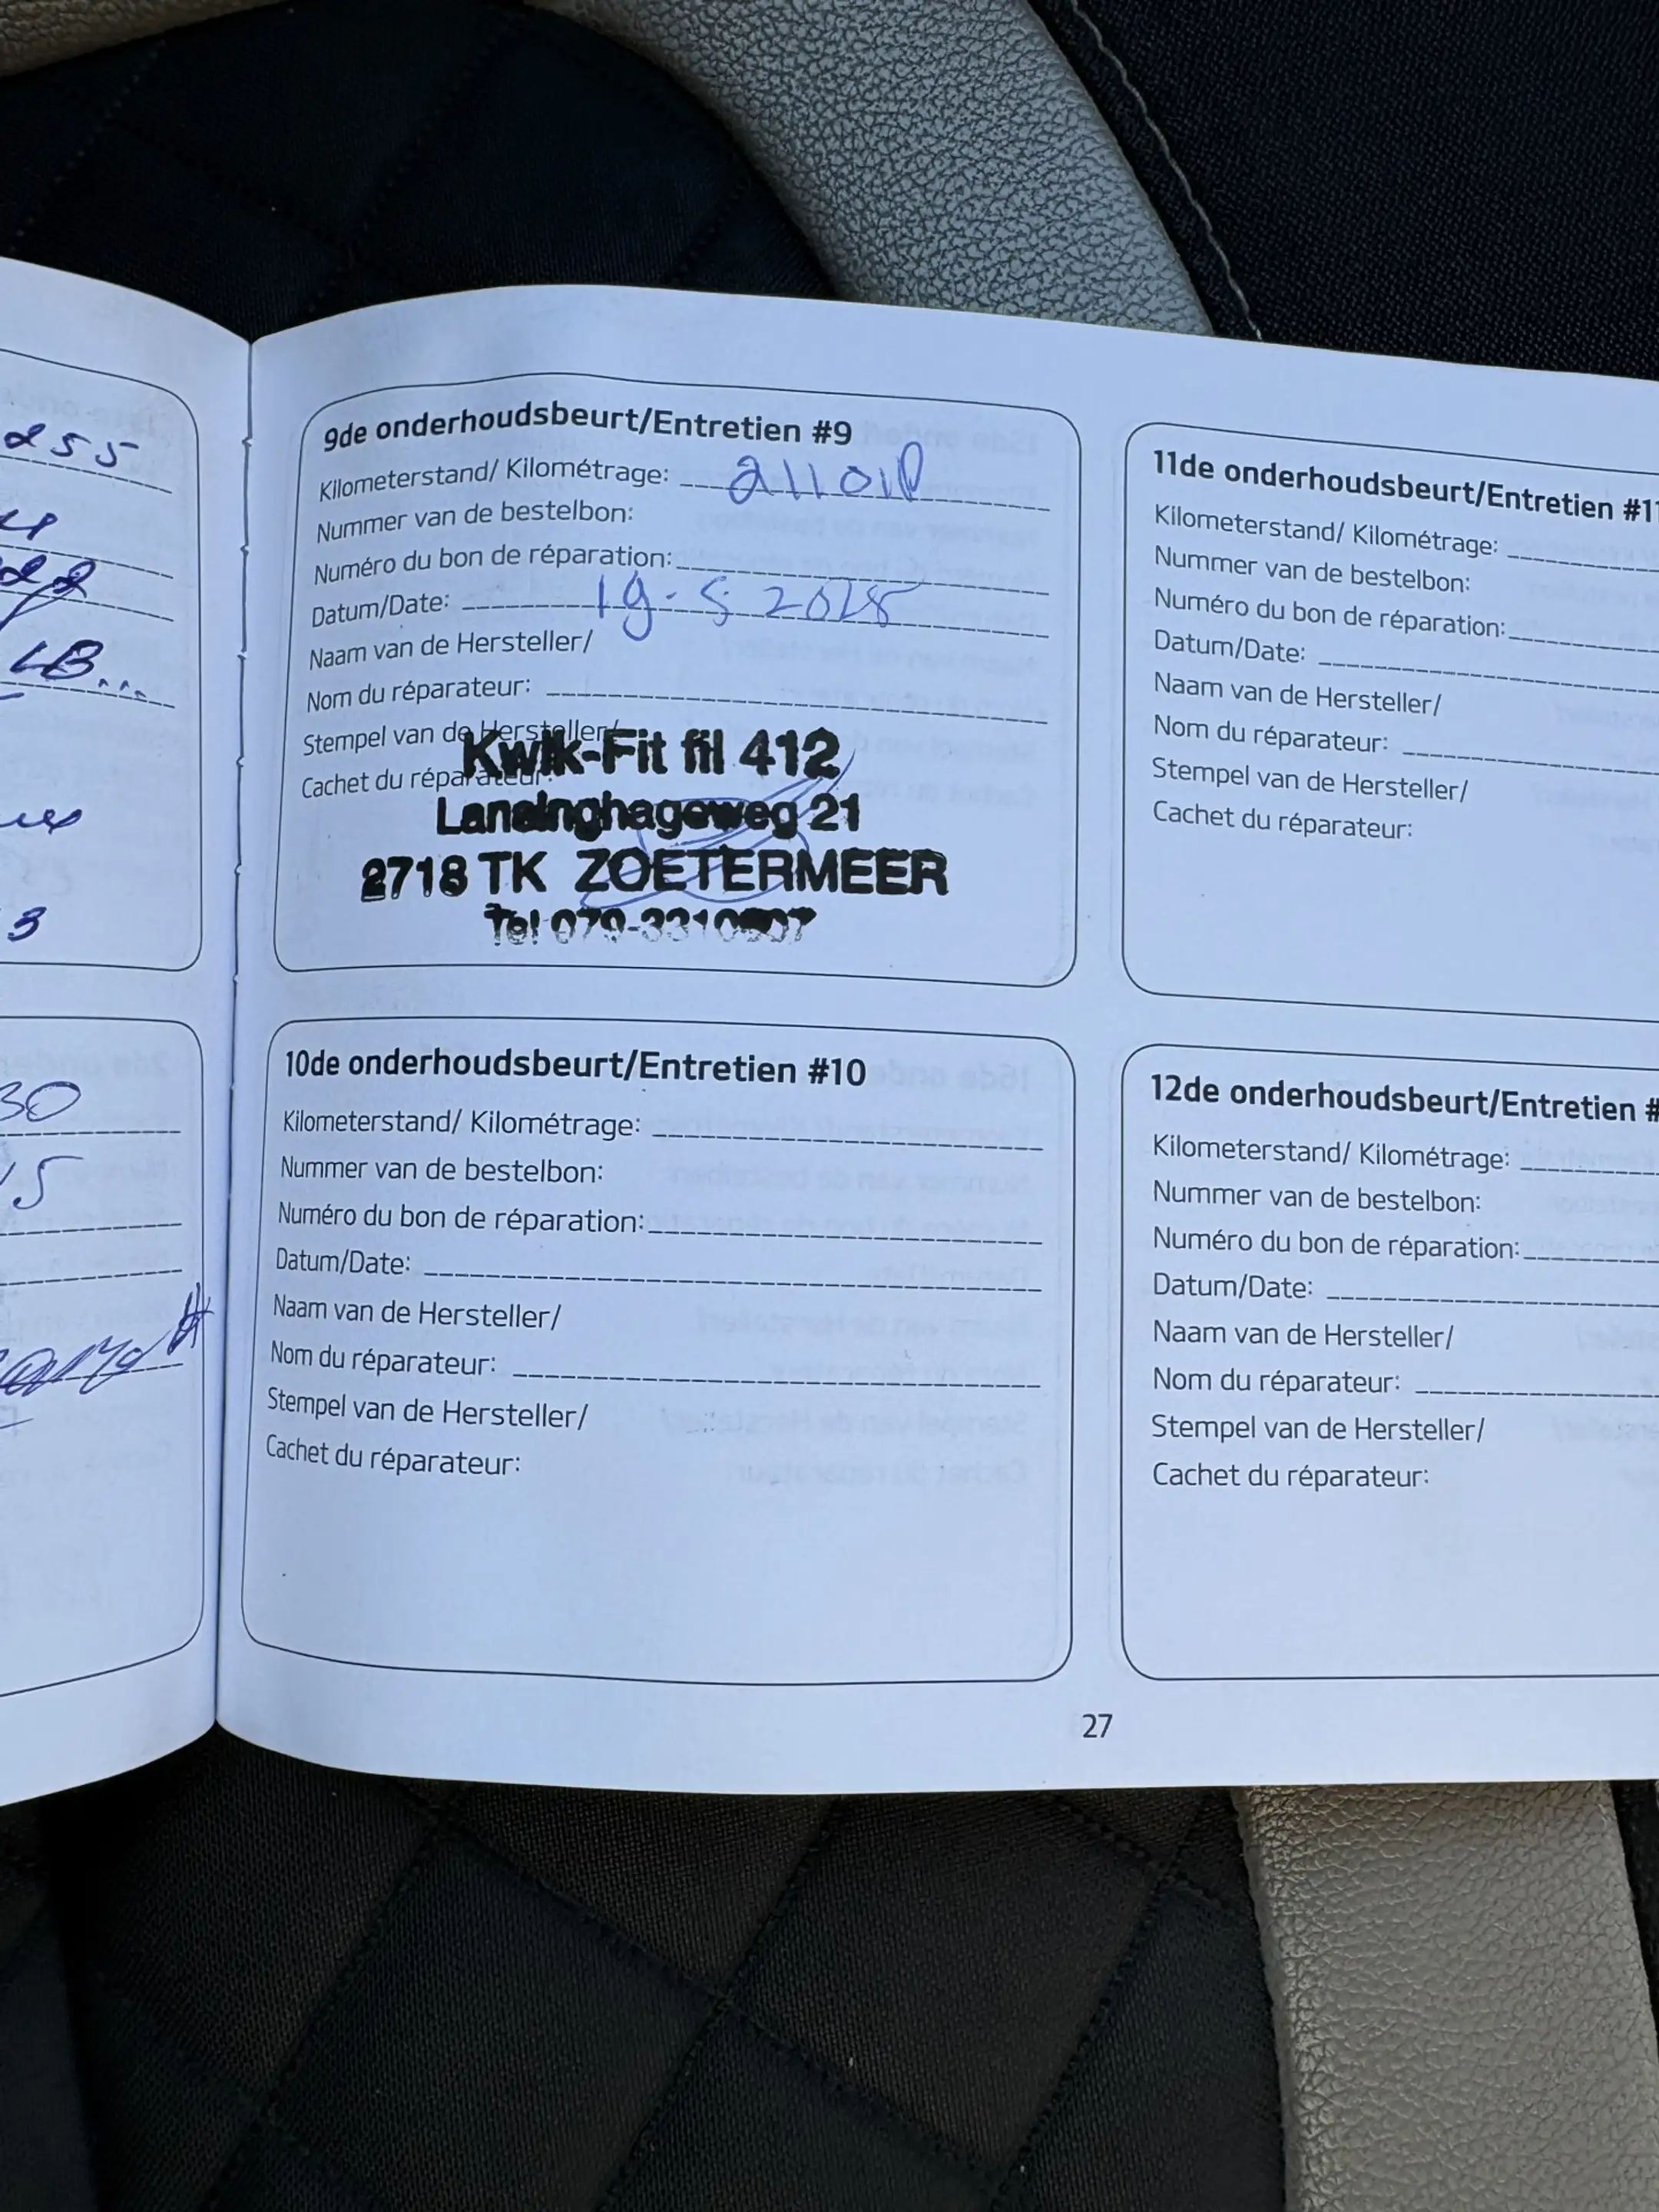 255
9de onderhoudsbeurt/Entretien #9
Kilometerstand/ Kilométrage:
Nummer van de bestelbon:
Numéro du bon de réparation:
Datum/Date: 19-5 2025
Naam van de Hersteller/
Nom du réparateur:
Stempel van de Hersteller/
Cachet du réparateur:
Kwik-Fit fil 412
Lansinghageweg 21
2718 TK ZOETERMEER
Tel 079-
3
30
5
10de onderhoudsbeurt/Entretien #10
Kilometerstand/ Kilométrage:
Nummer van de bestelbon:
Numéro du bon de réparation:
Datum/Date:
Naam van de Hersteller/
Nom du réparateur:
Stempel van de Hersteller/
Cachet du réparateur:
11de onderhoudsbeurt/Entretien #11
Kilometerstand/ Kilométrage:
Nummer van de bestelbon:
Numéro du bon de réparation:
Datum/Date:
Naam van de Hersteller/
Nom du réparateur:
Stempel van de Hersteller/
Cachet du réparateur:
12de onderhoudsbeurt/Entretien #
Kilometerstand/ Kilométrage:
Nummer van de bestelbon:
Numéro du bon de réparation:
Datum/Date:
Naam van de Hersteller/
Nom du réparateur:
Stempel van de Hersteller/
Cachet du réparateur:
27